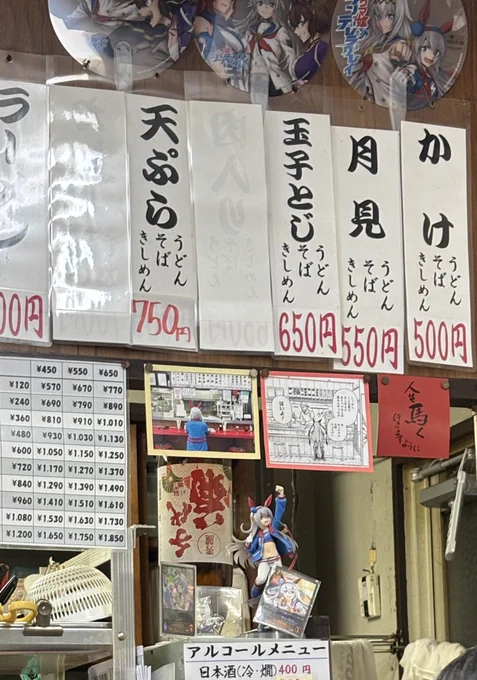 かけ
うどん
そば
きしめん
500円
月見
うどん
そば
きしめん
550円
玉子とじ
うどん
そば
きしめん
650円
天ぷら
うどん
そば
きしめん
750円
ラー
00円
¥450 ¥550 ¥650
¥120 ¥570 ¥670 ¥770
¥240 ¥690 ¥790 ¥890
¥360 ¥810 ¥910 ¥1.010
¥480 ¥930 ¥1.030 ¥1.130
¥600 ¥1.050 ¥1.150 ¥1.250
¥720 ¥1.170 ¥1.270 ¥1.370
¥840 ¥1.290 ¥1.390 ¥1.490
¥960 ¥1.410 ¥1.510 ¥1.610
¥1.080 ¥1.530 ¥1.630 ¥1.730
¥1.200 ¥1.650 ¥1.750 ¥1.850
はいよ
人生
馬く
ように
アルコールメニュー
日本酒(冷・燗)400円